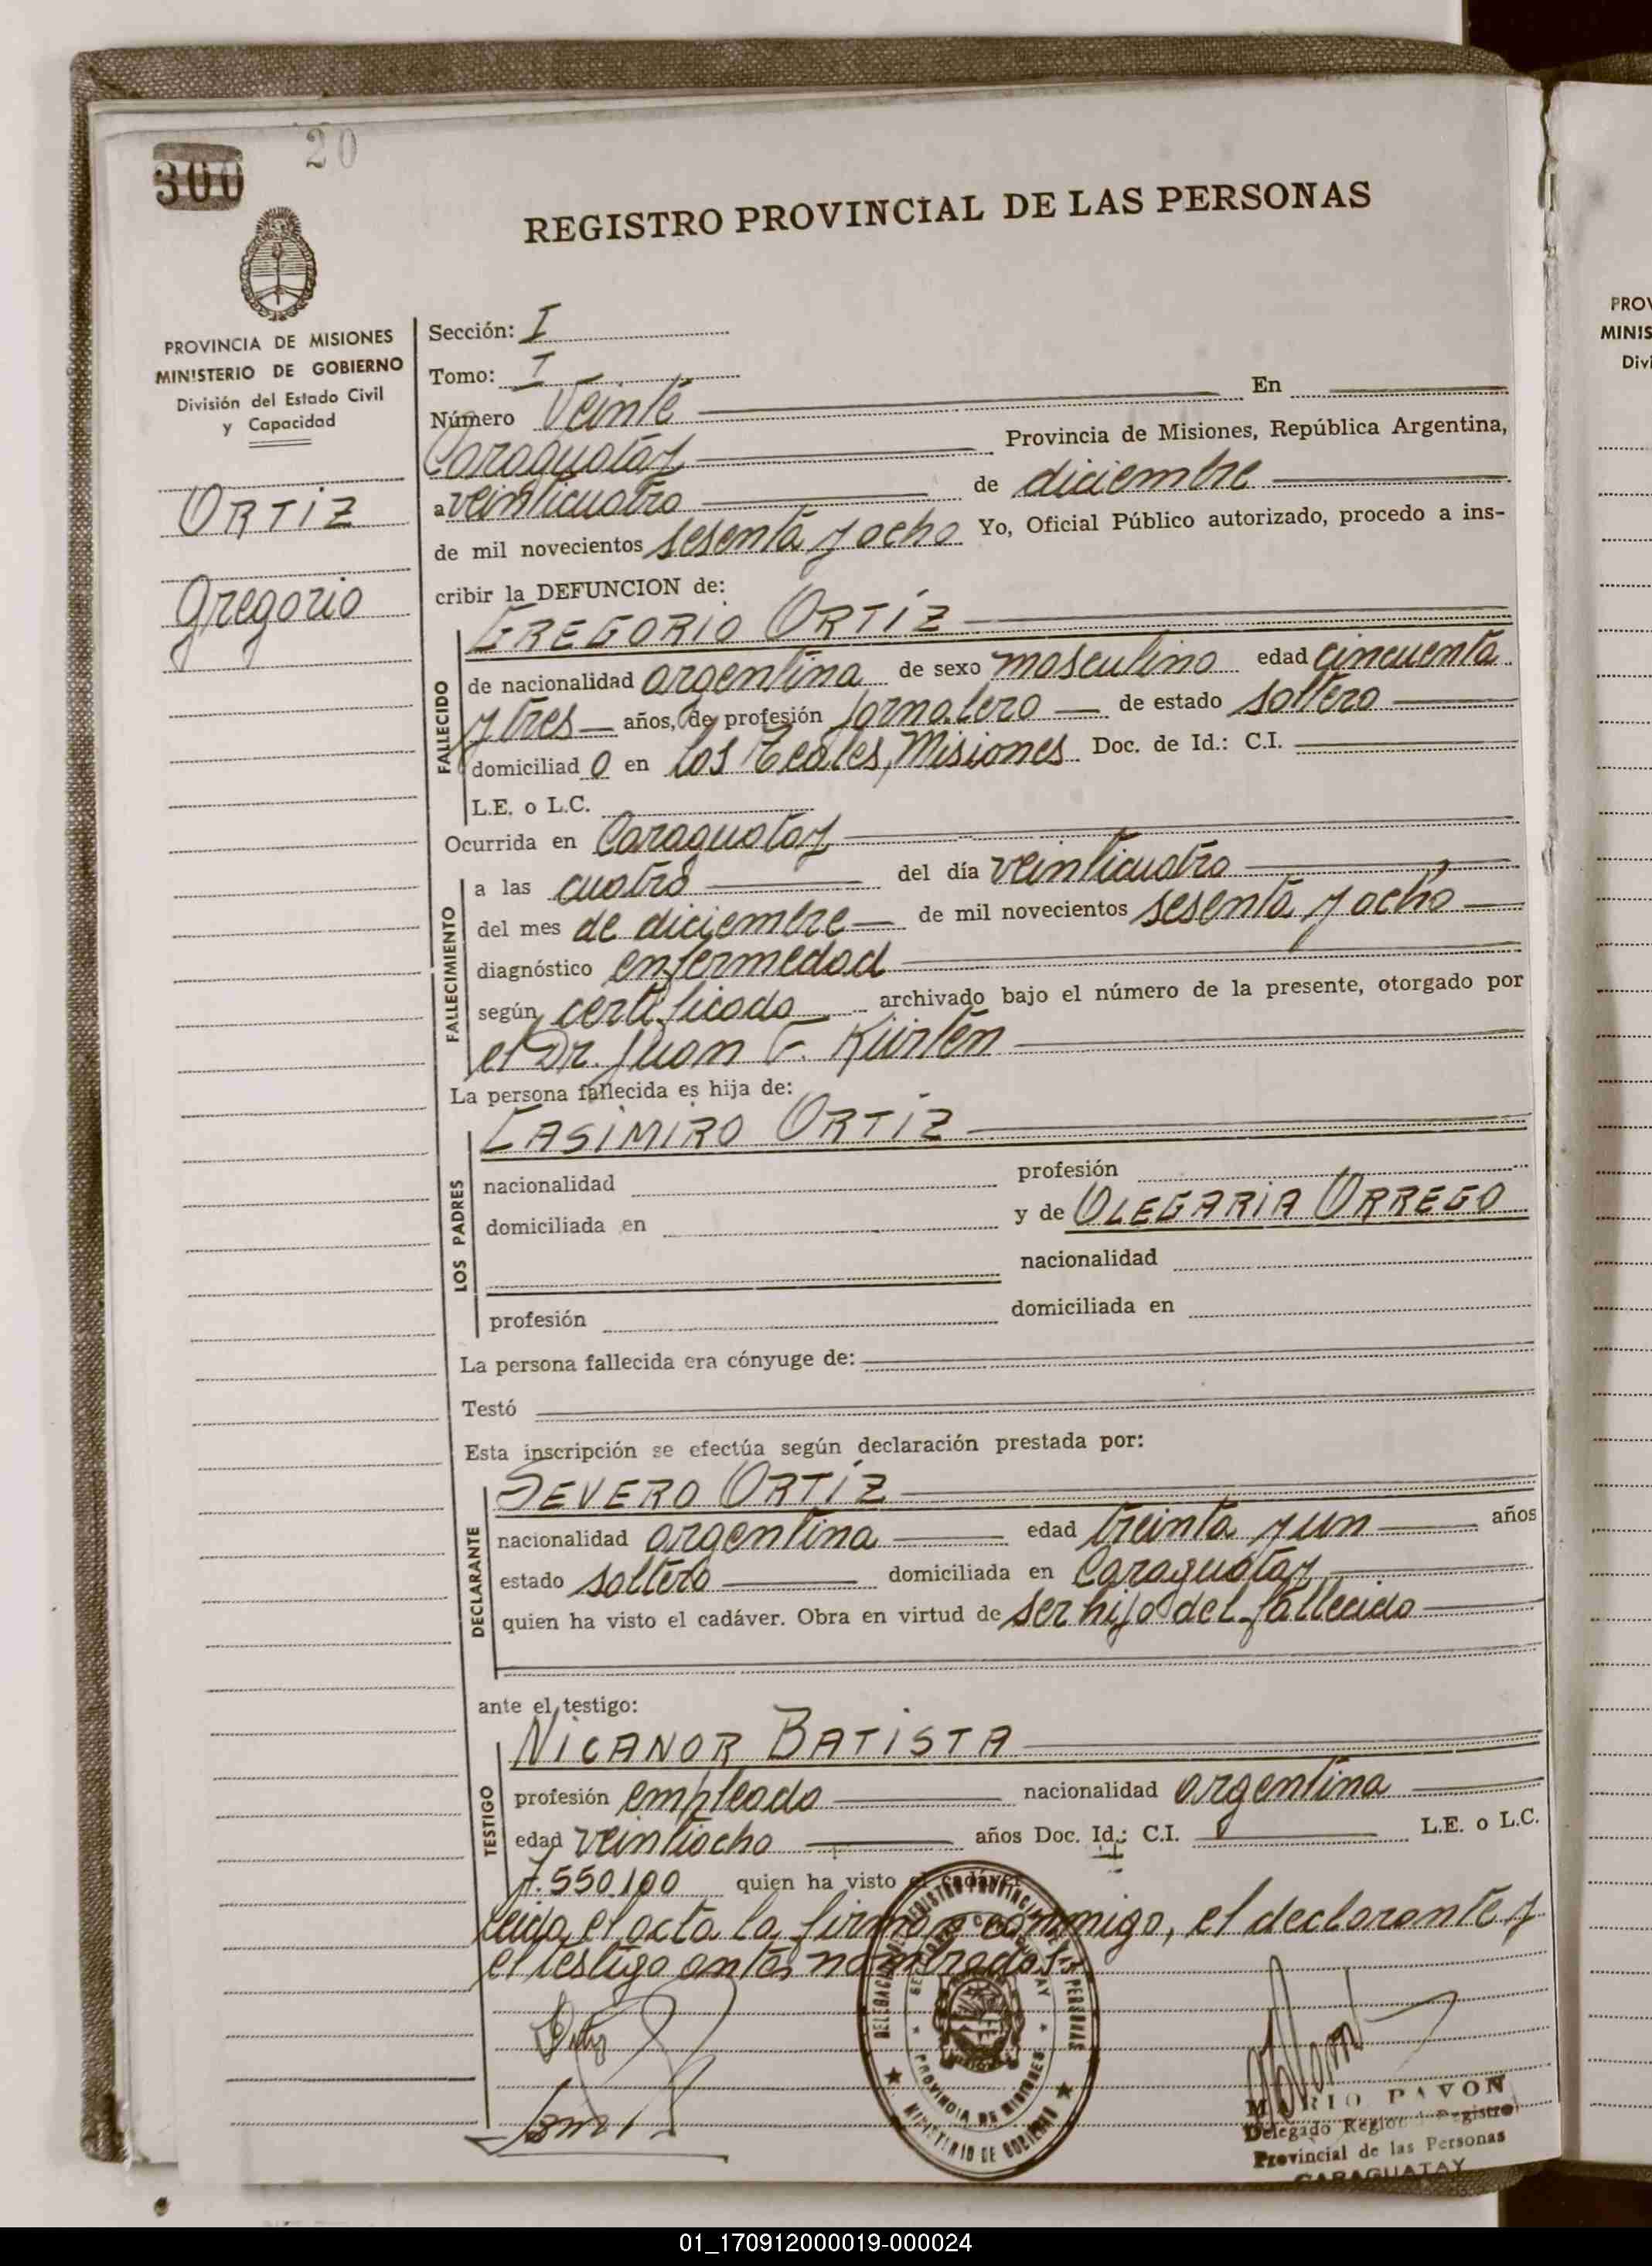 300
20
REGISTRO PROVINCIAL DE LAS PERSONAS
PROVINCIA DE MISIONES
MINISTERIO DE GOBIERNO
División del Estado Civil
y Capacidad
ORTIZ
Gregorio
Sección: I
Tomo: I
Número Veinte En
Caraguatay Provincia de Misiones, República Argentina,
a veinticuatro de diciembre
de mil novecientos sesenta y ocho Yo, Oficial Público autorizado, procedo a ins-
cribir la DEFUNCION de:
GREGORIO ORTÍZ
FALLECIDO
de nacionalidad argentina de sexo masculino edad cincuenta
y tres años, de profesión jornalero de estado soltero
domiciliad o en Los Teales, Misiones Doc. de Id.: C.I.
L.E. o L.C.
Ocurrida en Caraguatay
FALLECIMIENTO
a las cuatro del día veinticuatro
del mes de diciembre de mil novecientos sesenta y ocho
diagnóstico enfermedad
según certificado archivado bajo el número de la presente, otorgado por
el Dr. Juan F. Kürten
La persona fallecida es hija de:
LOS PADRES
CASIMIRO ORTÍZ
nacionalidad profesión
domiciliada en y de OLEGARIA ORREGO
nacionalidad
profesión domiciliada en
La persona fallecida era cónyuge de:
Testó
Esta inscripción se efectúa según declaración prestada por:
DECLARANTE
SEVERO ORTÍZ
nacionalidad argentina edad treinta y un años
estado soltero domiciliada en Caraguatay
quien ha visto el cadáver. Obra en virtud de ser hijo del fallecido
ante el testigo:
TESTIGO
NICANOR BATISTA
profesión empleado nacionalidad argentina
edad veintiocho años Doc. Id.: C.I. L.E. o L.C.
7.550.100 quien ha visto el cadáver
Leida el acta la firman conmigo, el declarante y
el testigo antes nombrados.
DELEGACION REGISTRO PROVINCIAL DE LAS PERSONAS
CARAGUATAY
PROVINCIA DE MISIONES
MINISTERIO DE GOBIERNO
MARIO PAVON
Delegado Region Registro
Provincial de las Personas
CARAGUATAY
PROV
MINIS
Divi
01_170912000019-000024